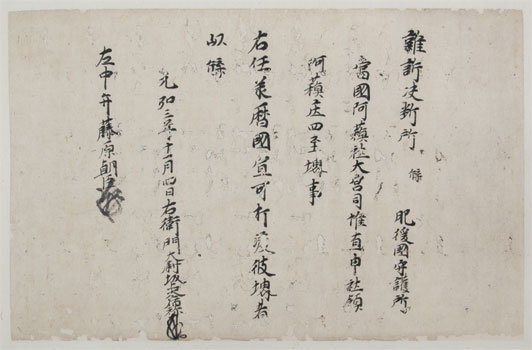 雜訴决断所 牒 肥後國守護所
當國阿蘓社大宮司惟直申社領
阿蘓庄四至堺事
右任承暦國宣可打定彼堺者
以牒
元弘三年十一月四日右衛門
左中弁藤原朝臣